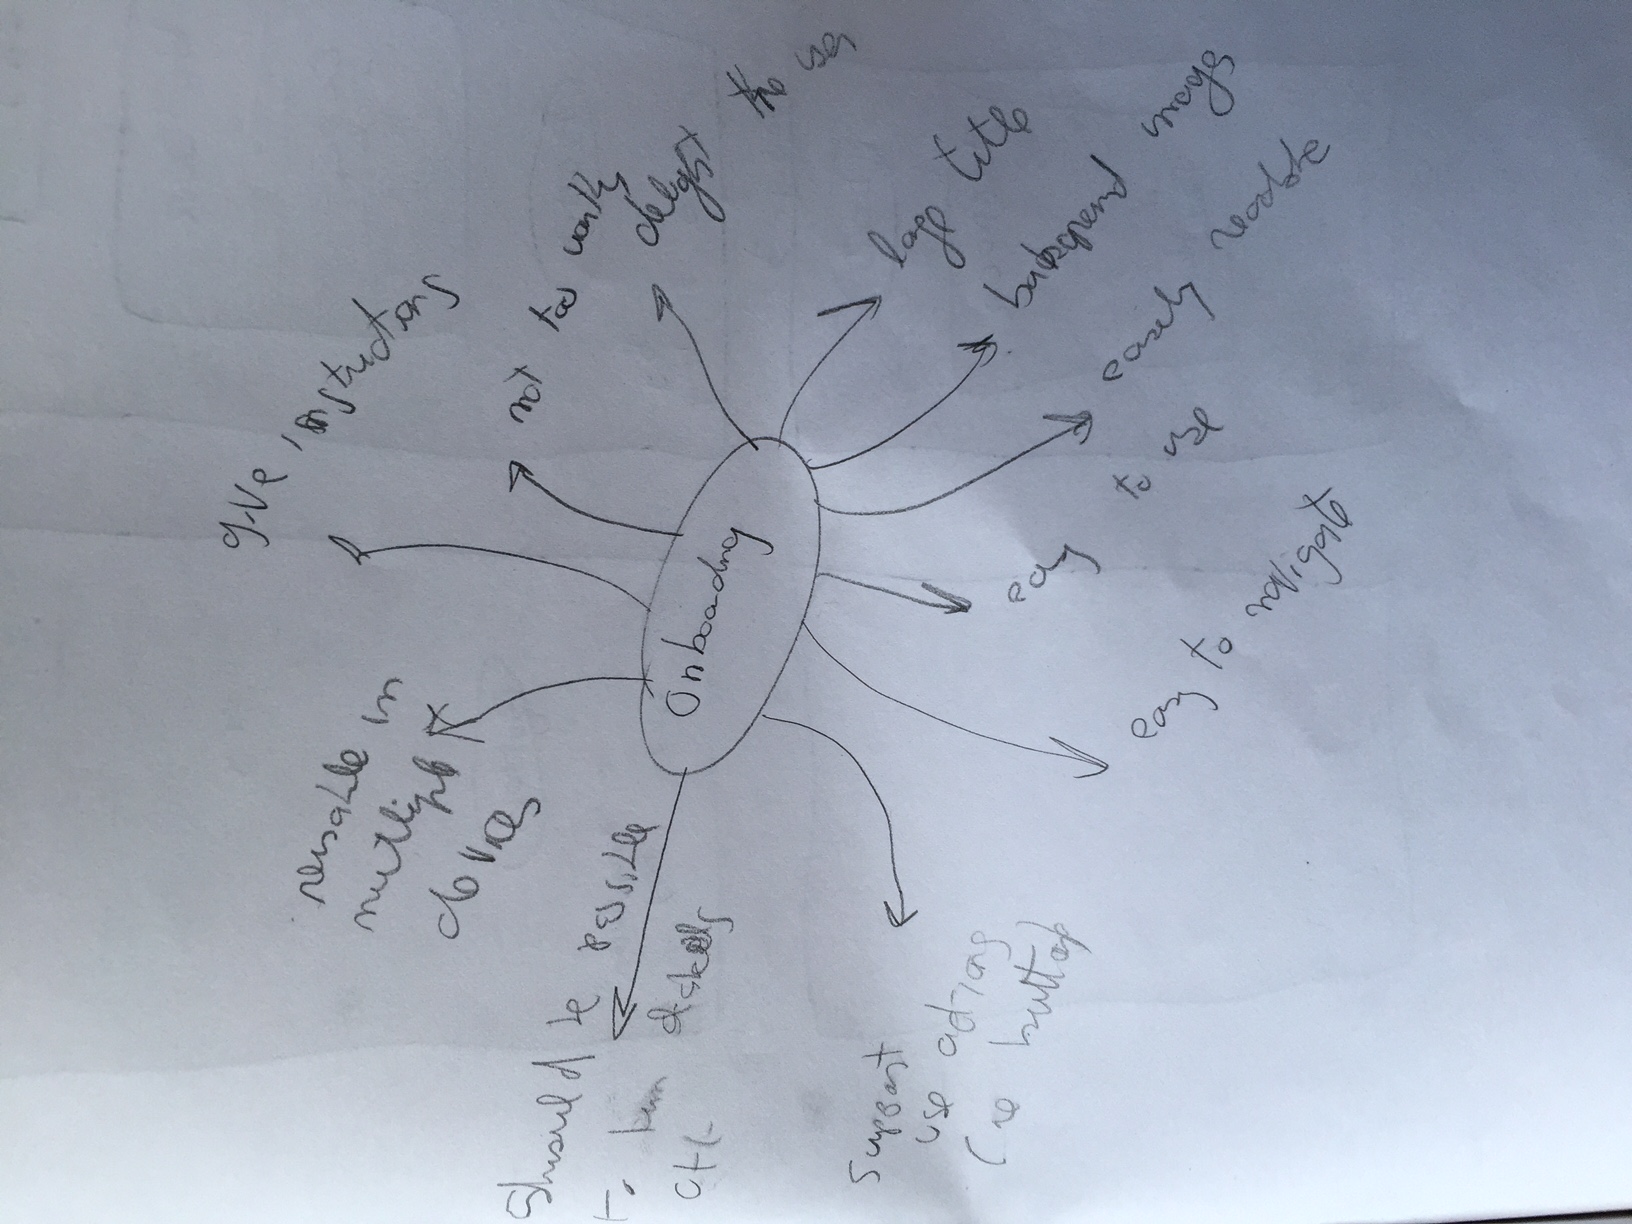 Onboarding
give instructions
not too wordy
delight the user
large title
background image
easily readable
easy to use
easy to navigate
Support
use actions
(ie button)
Should be possible
to turn
off
reusable in
multiple
devices